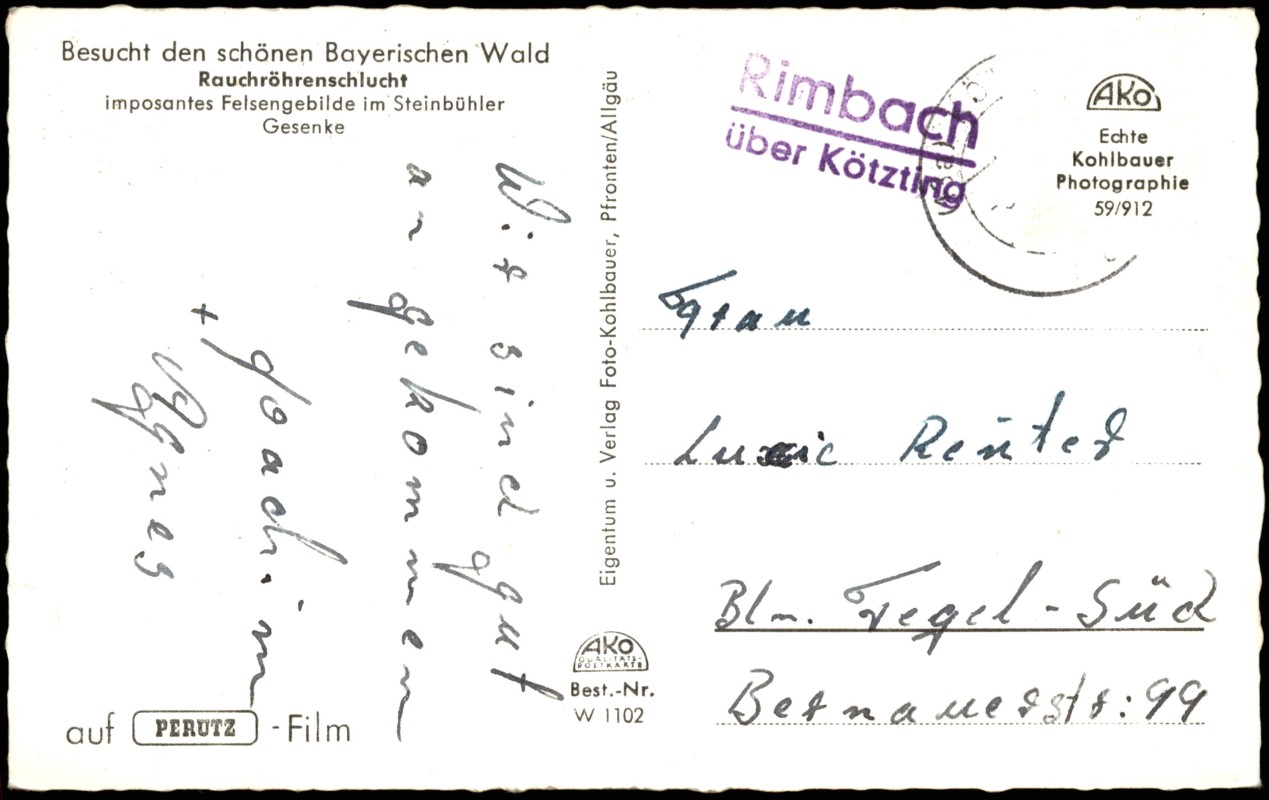 Besucht den schönen Bayerischen Wald
Rauchröhrenschlucht
imposantes Felsengebilde im Steinbühler
Gesenke
Wir sind gut
angekommen
Joachim
+ Agnes
auf PERUTZ -Film
Eigentum u. Verlag Foto-Kohlbauer, Pfronten/Allgäu
AKO
QUALITÄTS-
POSTKARTE
Best.-Nr.
W 1102
Rimbach
über Kötzting
AKO
Echte
Kohlbauer
Photographie
59/912
Frau
Reuter
Bln. Tegel-Süd
Bernauerstr: 99